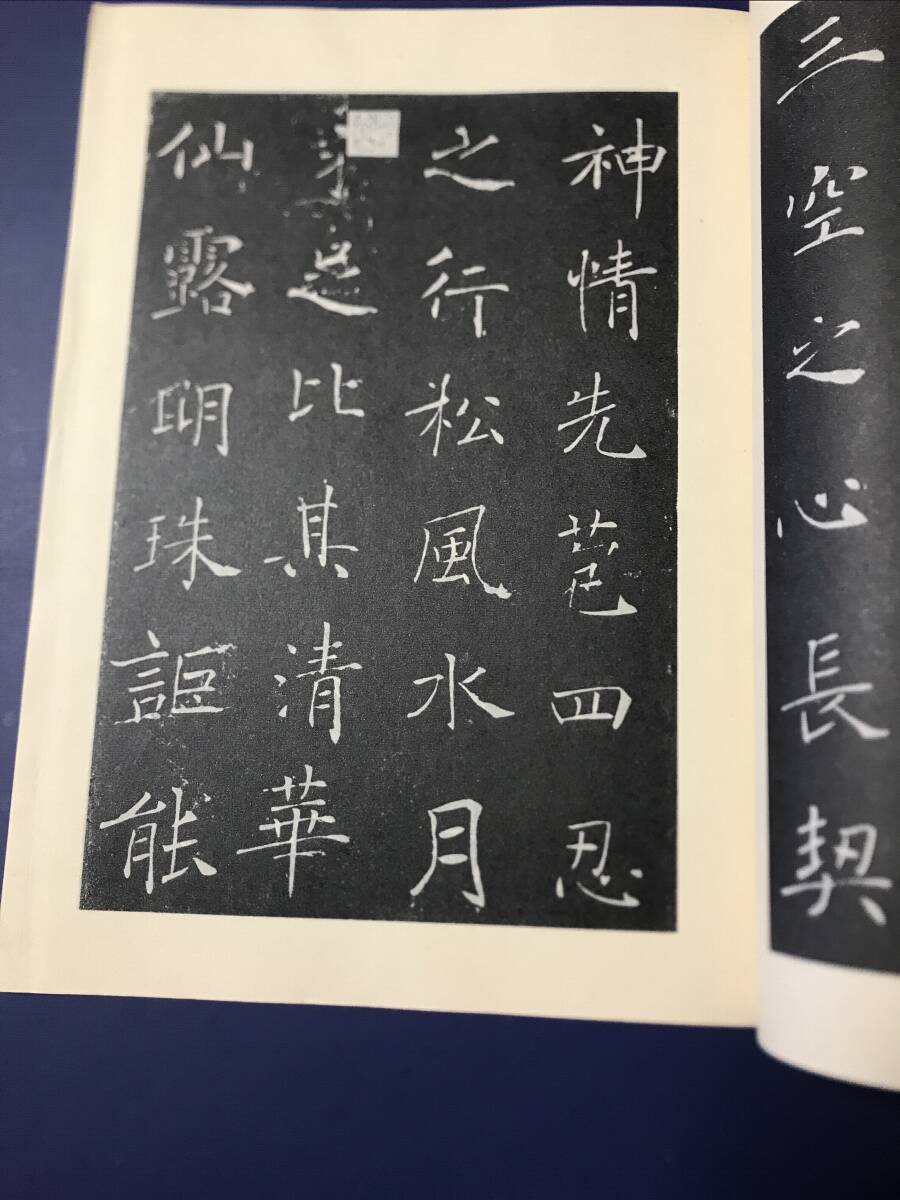 三空之心長契
神情先苞四忍
之行松風水月
未足比其清華
仙露明珠詎能